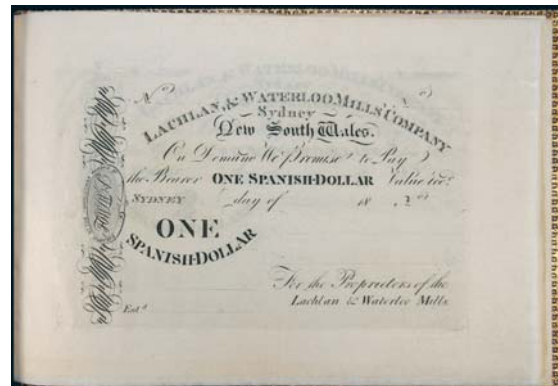 No
LACHLAN, & WATERLOO MILLS COMPANY
Sydney
New South Wales.
On Demand We Promise to Pay
the Bearer ONE SPANISH-DOLLAR Value rec.d
SYDNEY day of 18 No
ONE
SPANISH-DOLLAR
For the Proprietors of the
Lachlan & Waterloo Mills.
Ent.d